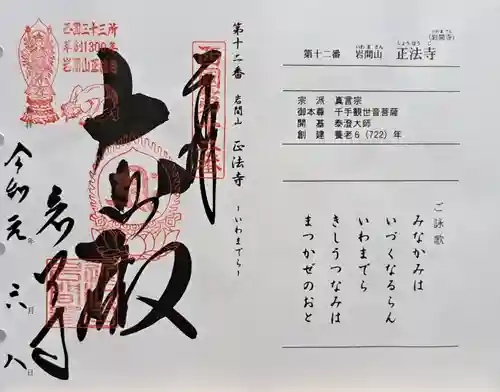 西国三十三所
草創1300年
岩間山正法寺
奉拝
大悲殿
岩間寺
令和元年六月八日
第十二番 岩間山 正法寺 ーいわまでらー
いわまさん しょうほうじ (岩間寺)
第十二番 岩間山 正法寺
宗派 真言宗
御本尊 千手観世音菩薩
開基 泰澄大師
創建 養老6(722)年
ご詠歌
みなかみは
いづくなるらん
いわまでら
きしうつなみは
まつかぜのおと